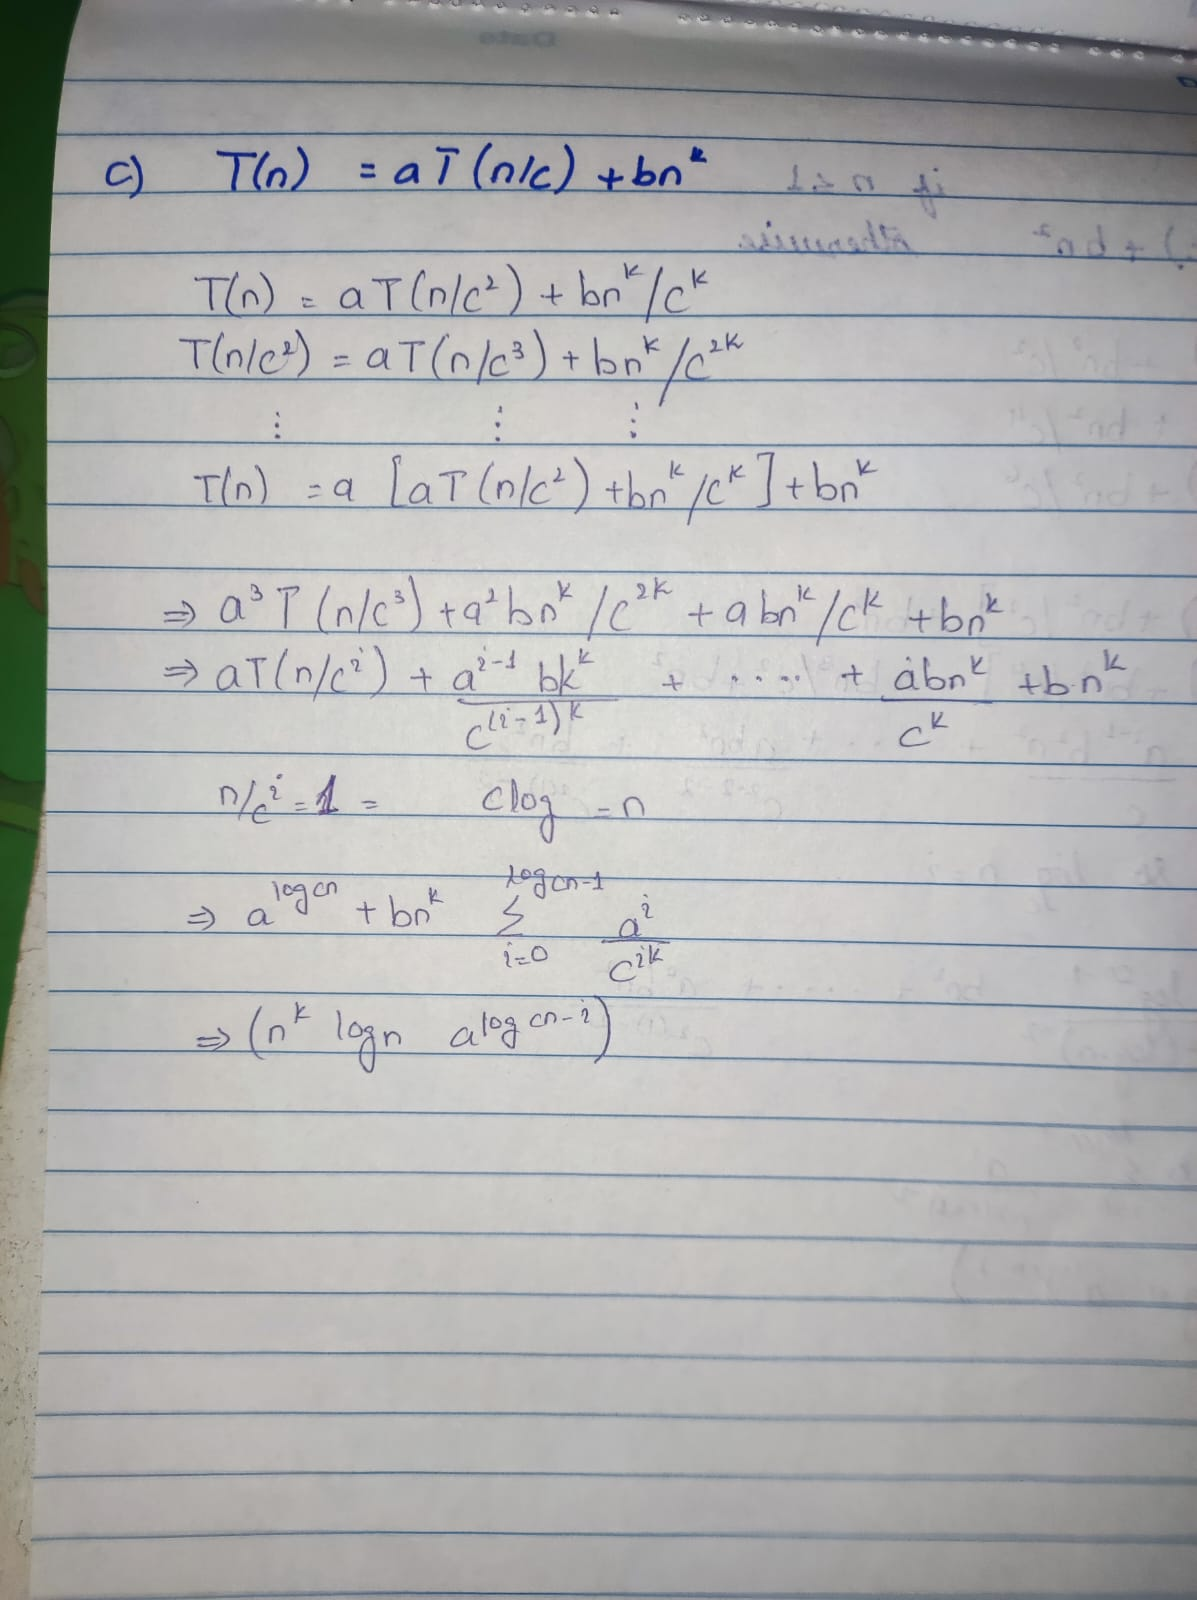 Date
c) T(n) = aT(n/c) + bn^k
T(n) = aT(n/c²) + bn^k/c^k
T(n/c²) = aT(n/c³) + bn^k/c^2k
⋮ ⋮ ⋮
T(n) = a [aT(n/c²) + bn^k/c^k] + bn^k
⇒ a³T(n/c³) + a²bn^k/c^2k + abn^k/c^k + bn^k
⇒ aT(n/c^i) + a^i-1 bk^k / c^(i-1)k + .... + abn^k / c^k + b.n^k
n/c^i = 1 = clog = n
⇒ a^logcn + bn^k Σ_i=0^logcn-1 a^i / c^ik
⇒ (n^k logn a^logcn-i)